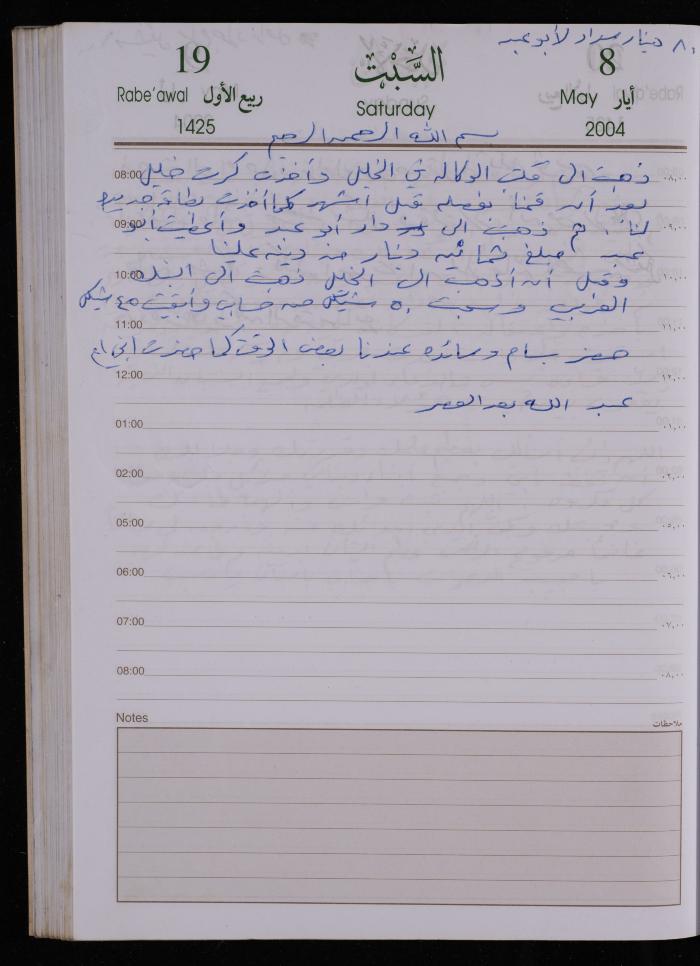 ٨٠ دينار سداد لأبو عبد
19 السَّبْت 8
Rabe'awal ربيع الأول Saturday May أيار
1425 2004
بسم الله الرحمن الرحيم
08:00 ذهبت الى مكتب الوكالة في الخليل وأخذت كرت ٠٨,٠٠
بعد أن قمنا بفصله قبل أشهر كما أخذت بطاقة جديدة
09:00 لنا. ثم ذهبت الى دار أبو عبد وأعطيت أبو ٠٩,٠٠
عبد مبلغ ثمانية دينار من دينه علينا
10:00 وقبل أن أذهب الى الخليل ذهبت الى البنك ١٠,٠٠
العربي وسحبت ٥٠ شيكل من حسابي وأبقيت ٤٥ شيكل
11:00 ١١,٠٠
حضر بسام وسائده عندنا بعض الوقت كما حضرت أختي أم
12:00 ١٢,٠٠
عبد الله بعد العصر
01:00 ٠١,٠٠
02:00 ٠٢,٠٠
05:00 ٠٥,٠٠
06:00 ٠٦,٠٠
07:00 ٠٧,٠٠
08:00 ٠٨,٠٠
Notes ملاحظات